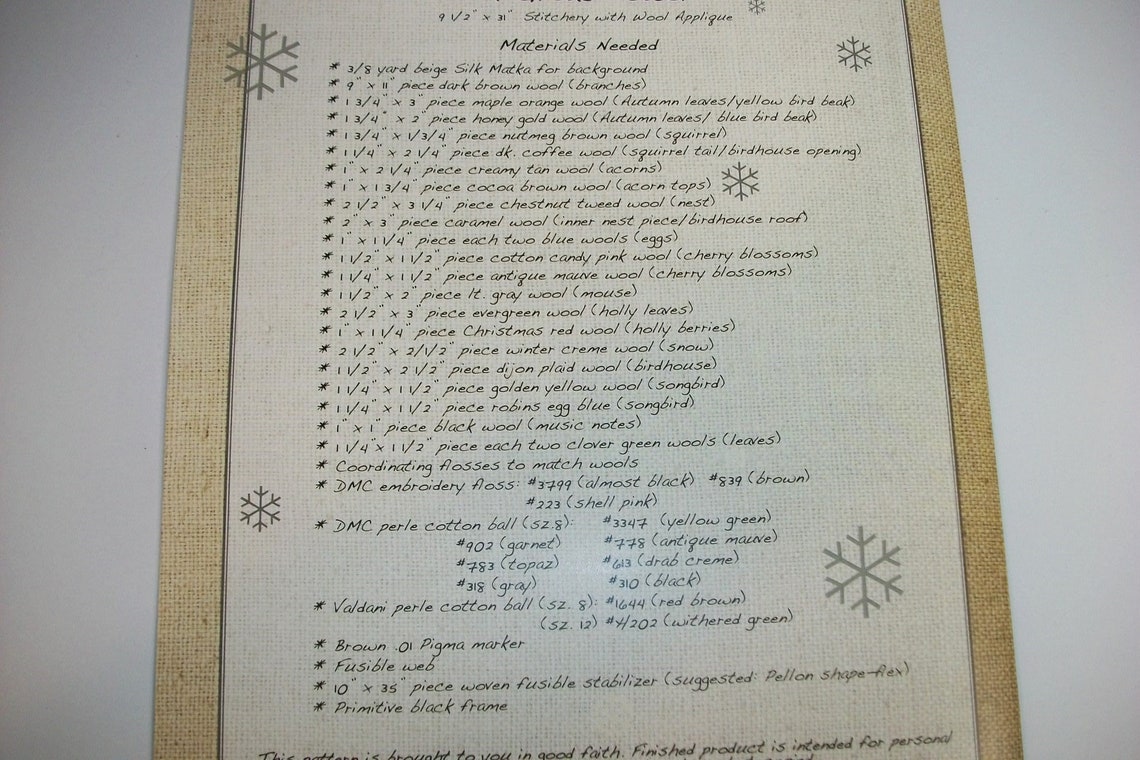 9 1/2" x 31" Stitchery with Wool Applique
Materials Needed
* 3/8 yard beige Silk Matka for background
* 9" x 11" piece dark brown wool (branches)
* 1 3/4" x 3" piece maple orange wool (Autumn leaves/yellow bird beak)
* 1 3/4" x 2" piece honey gold wool (Autumn leaves/ blue bird beak)
* 1 3/4" x 1/3/4" piece nutmeg brown wool (squirrel)
* 1 1/4" x 2 1/4" piece dk. coffee wool (squirrel tail/birdhouse opening)
* 1" x 2 1/4" piece creamy tan wool (acorns)
* 1" x 1 3/4" piece cocoa brown wool (acorn tops)
* 2 1/2" x 3 1/4" piece chestnut tweed wool (nest)
* 2" x 3" piece caramel wool (inner nest piece/birdhouse roof)
* 1" x 1 1/4" piece each two blue wools (eggs)
* 1 1/2" x 1 1/2" piece cotton candy pink wool (cherry blossoms)
* 1 1/4" x 1 1/2" piece antique mauve wool (cherry blossoms)
* 1 1/2" x 2" piece lt. gray wool (mouse)
* 2 1/2" x 3" piece evergreen wool (holly leaves)
* 1" x 1 1/4" piece Christmas red wool (holly berries)
* 2 1/2" x 2/1/2" piece winter creme wool (snow)
* 1 1/2" x 2 1/2" piece dijon plaid wool (birdhouse)
* 1 1/4" x 1 1/2" piece golden yellow wool (songbird)
* 1 1/4" x 1 1/2" piece robins egg blue (songbird)
* 1" x 1" piece black wool (music notes)
* 1 1/4" x 1 1/2" piece each two clover green wools (leaves)
* Coordinating flosses to match wools
* DMC embroidery floss: #3799 (almost black) #839 (brown)
#223 (shell pink)
* DMC perle cotton ball (sz.8): #3347 (yellow green)
#902 (garnet) #778 (antique mauve)
#783 (topaz) #613 (drab creme)
#318 (gray) #310 (black)
* Valdani perle cotton ball (sz. 8): #1644 (red brown)
(sz. 12) #H202 (withered green)
* Brown .01 Pigma marker
* Fusible web
* 10" x 35" piece woven fusible stabilizer (suggested: Pellon shape-flex)
* Primitive black frame
This pattern is brought to you in good faith. Finished product is intended for personal